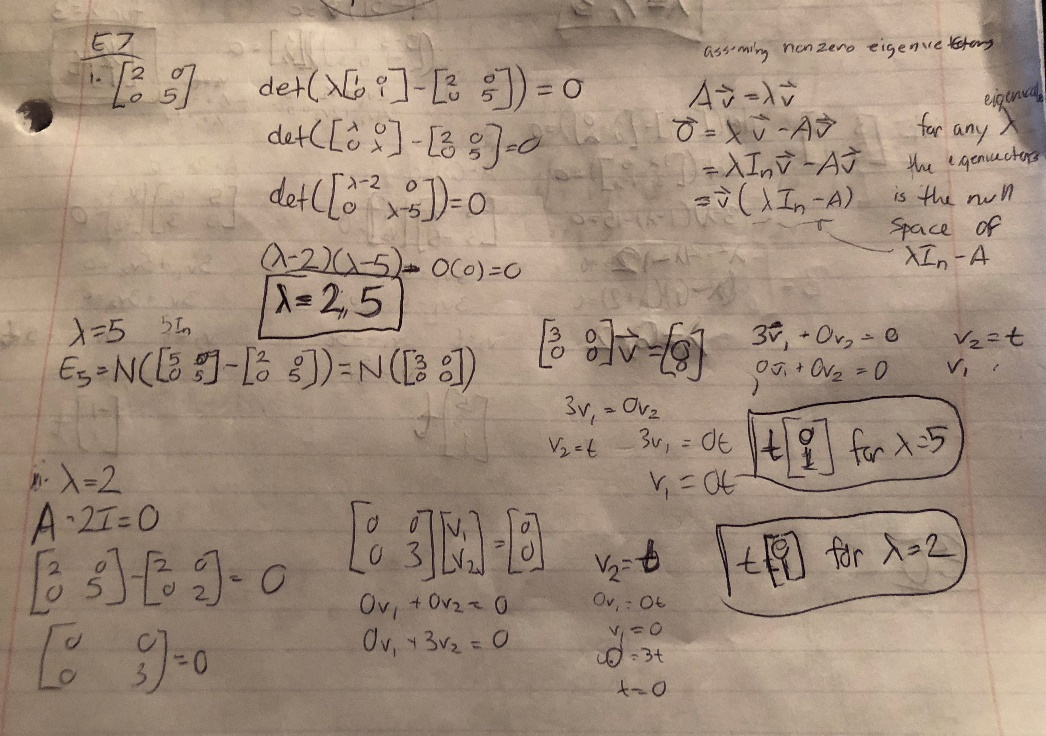 E7
i. [2 0; 0 5]
det(λ[1 0; 0 1] - [2 0; 0 5]) = 0
det([λ 0; 0 λ] - [2 0; 0 5]) = 0
det([λ-2 0; 0 λ-5]) = 0
(λ-2)(λ-5) - 0(0) = 0
λ = 2, 5
assuming nonzero eigenvectors
Av⃗ = λv⃗
0⃗ = λv⃗ - Av⃗
= λIₙv⃗ - Av⃗
= v⃗(λIₙ - A)
for any eigenvalue λ
the eigenvectors
is the null
space of
λIₙ - A
λ=5 5Iₙ
E₅ = N([5 0; 0 5] - [2 0; 0 5]) = N([3 0; 0 0])
[3 0; 0 0]v⃗ = [0; 0]
3v₁ + 0v₂ = 0
0v₁ + 0v₂ = 0
v₂ = t
v₁
3v₁ = 0v₂
v₂ = t 3v₁ = 0t
v₁ = 0t
t[0; 1] for λ=5
ii. λ=2
A-2I=0
[2 0; 0 5] - [2 0; 0 2] = 0
[0 0; 0 3] = 0
[0 0; 0 3][v₁; v₂] = [0; 0]
0v₁ + 0v₂ = 0
0v₁ + 3v₂ = 0
v₂ = t
0v₁ = 0t
v₁ = 0
0 = 3t
t = 0
for λ=2